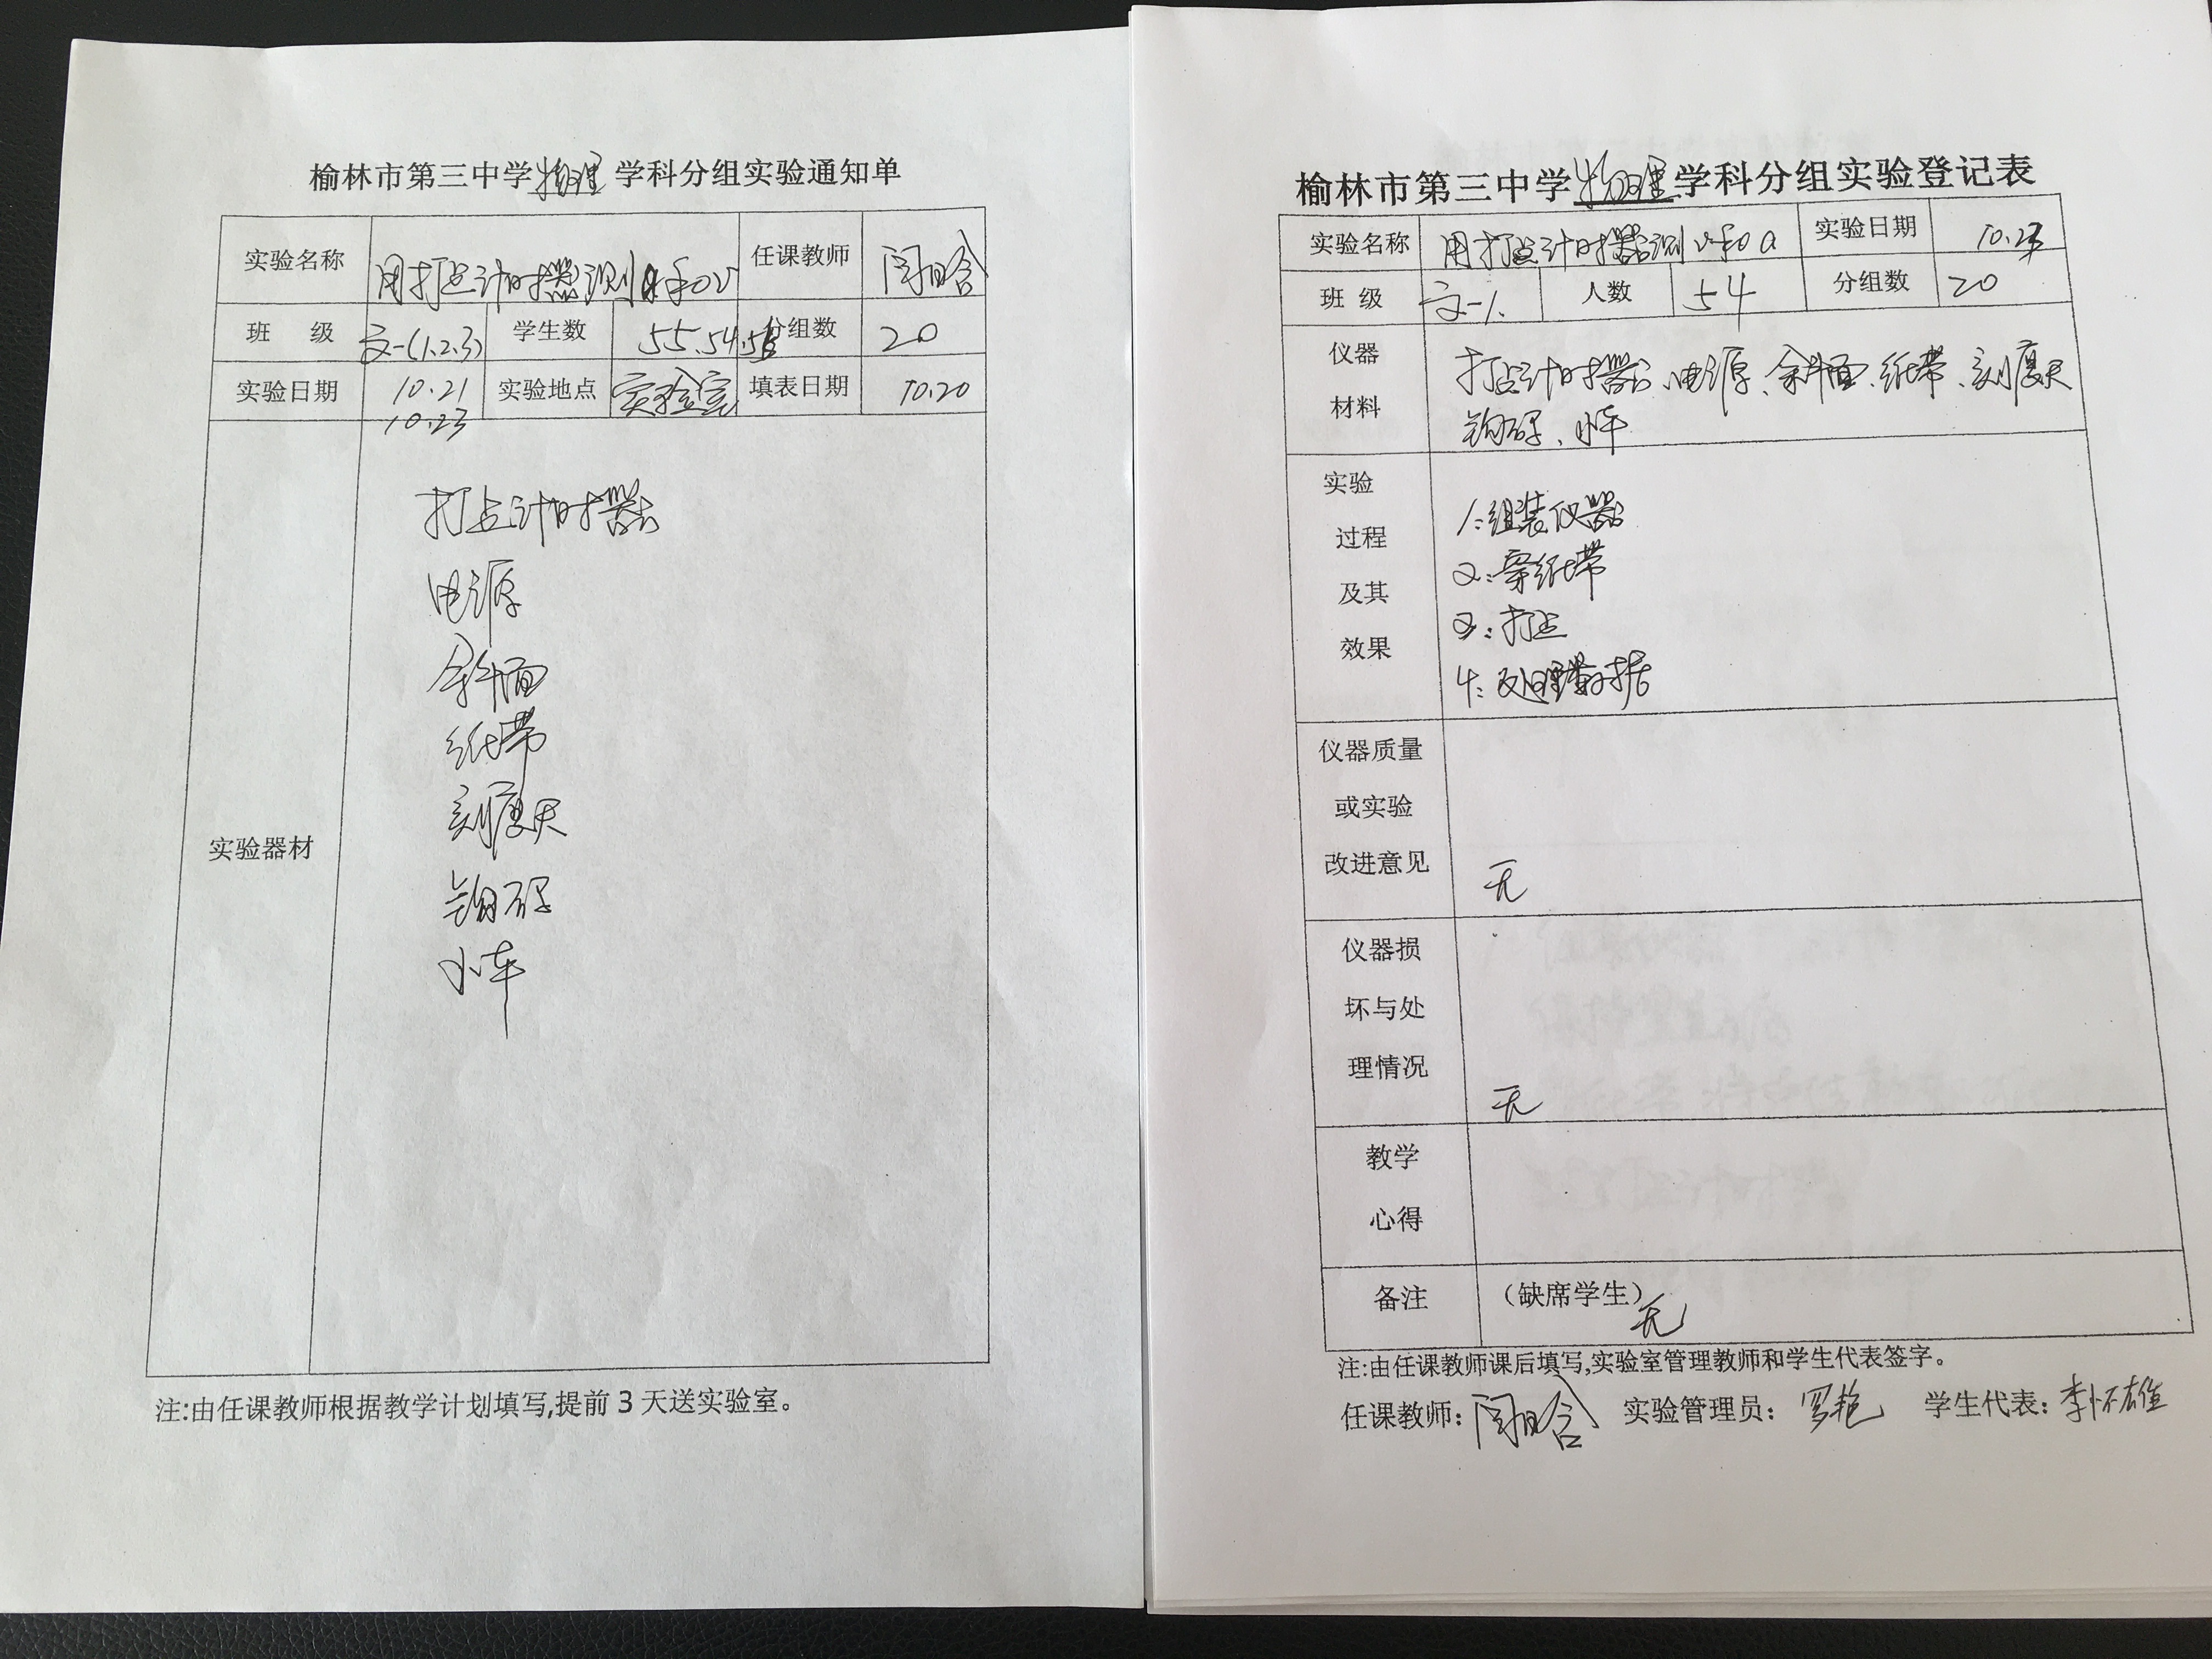 榆林市第三中学物理学科分组实验通知单
实验名称 用打点计时器测a和v 任课教师
班 级 文-(1.2.3) 学生数 55.54. 分组数 20
实验日期 10.21 10.23 实验地点 实验室 填表日期 10.20
实验器材
打点计时器
电源
斜面
纸带
刻度尺
钩码
小车
注:由任课教师根据教学计划填写,提前3天送实验室。
榆林市第三中学物理学科分组实验登记表
实验名称 用打点计时器测v和a 实验日期 10.23
班 级 文-1. 人数 54 分组数 20
仪器材料
打点计时器、电源、斜面、纸带、刻度尺
钩码、小车
实验过程及其效果
1:组装仪器
2:穿纸带
3:打点
4:处理数据
仪器质量或实验改进意见 无
仪器损坏与处理情况 无
教学心得
备注 (缺席学生) 无
注:由任课教师课后填写,实验室管理教师和学生代表签字。
任课教师: 实验管理员:罗艳 学生代表:李怀雄